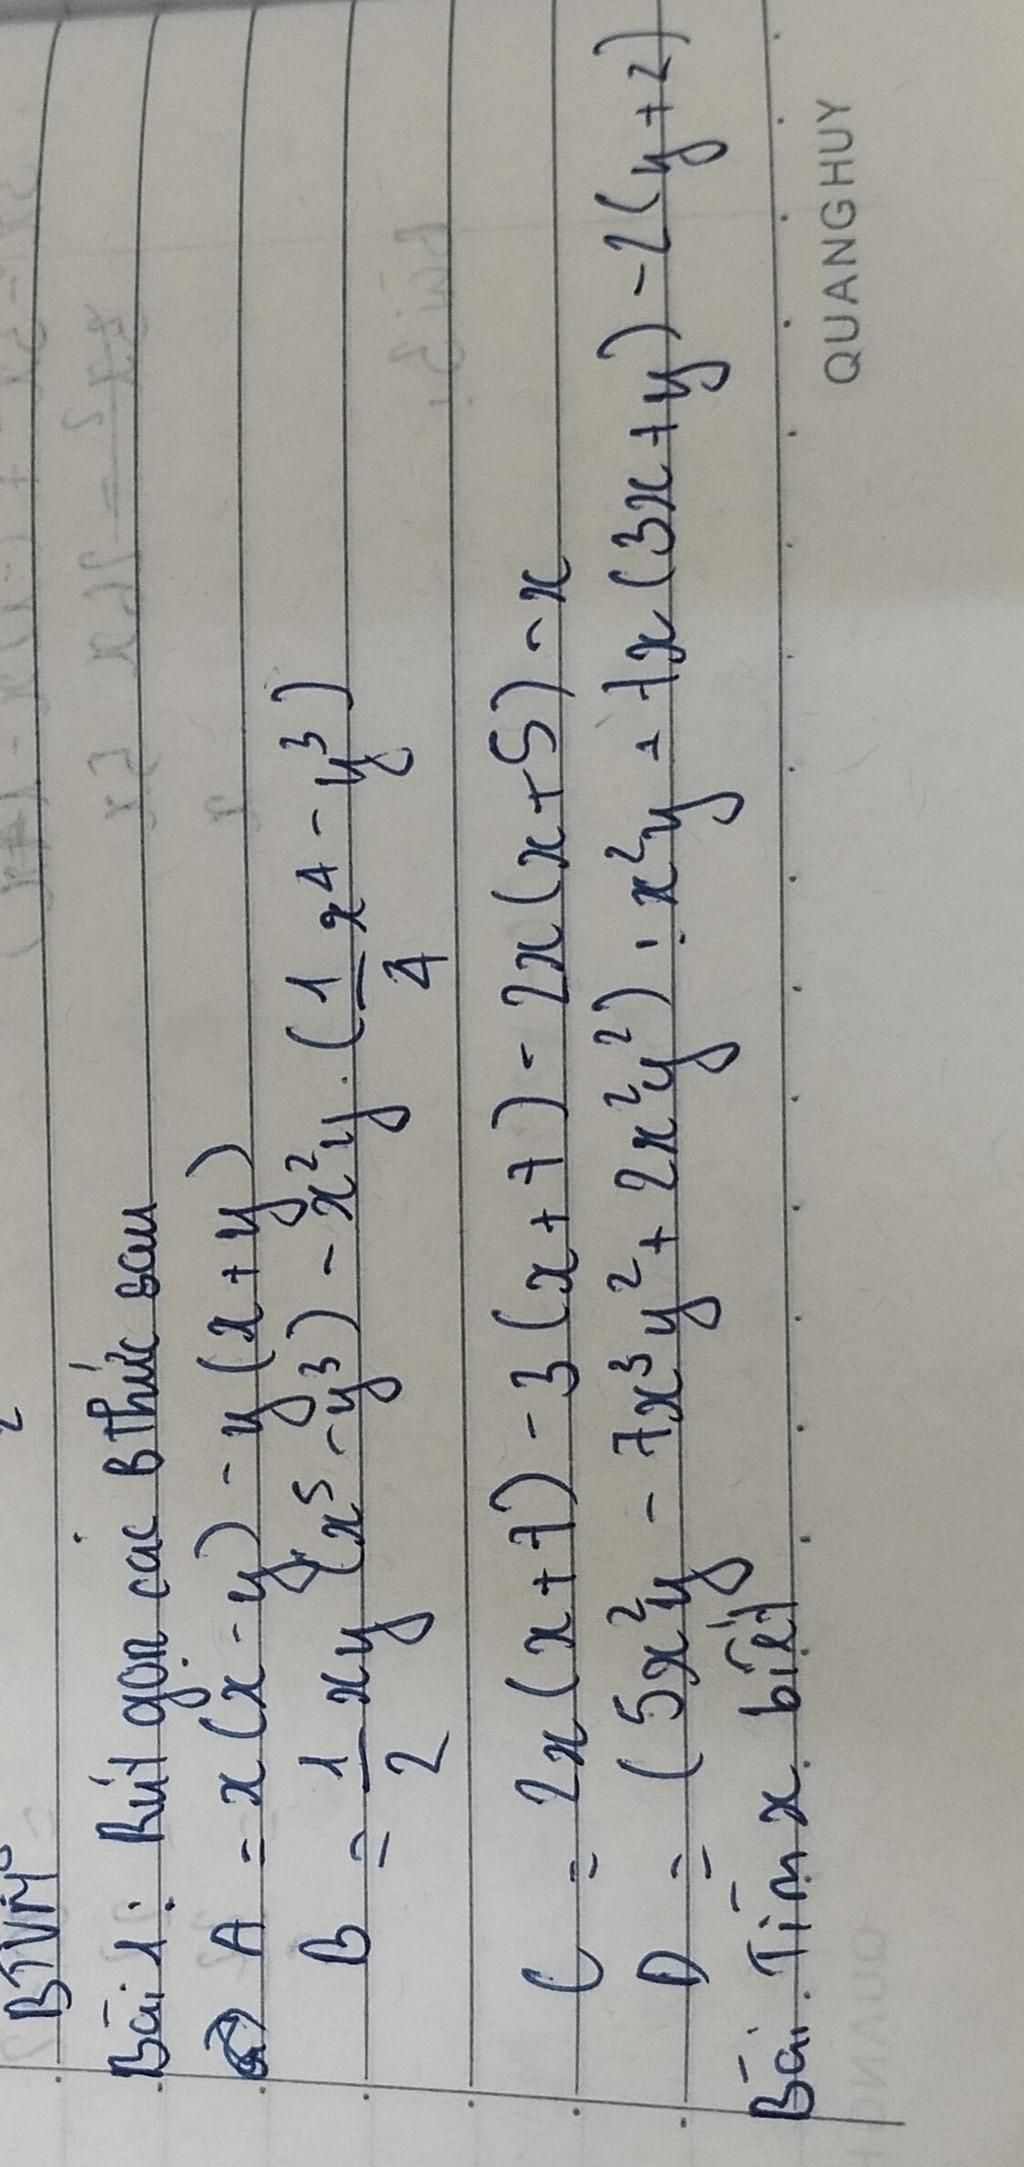 BTVN
Bài 1: Rút gọn các B thức sau
A = x(x-y) - y(x+y)
B = 1/2 xy (x⁵ - y³) - x²y . (1/4 x⁴ - y³)
C = 2x(x+7) - 3(x+7) - 2x(x+5) - x
D = (5x²y - 7x³y² + 2x²y²) : x²y + 7x(3x+y) - 2(y+2)
Bài. Tìm x biết
QUANGHUY